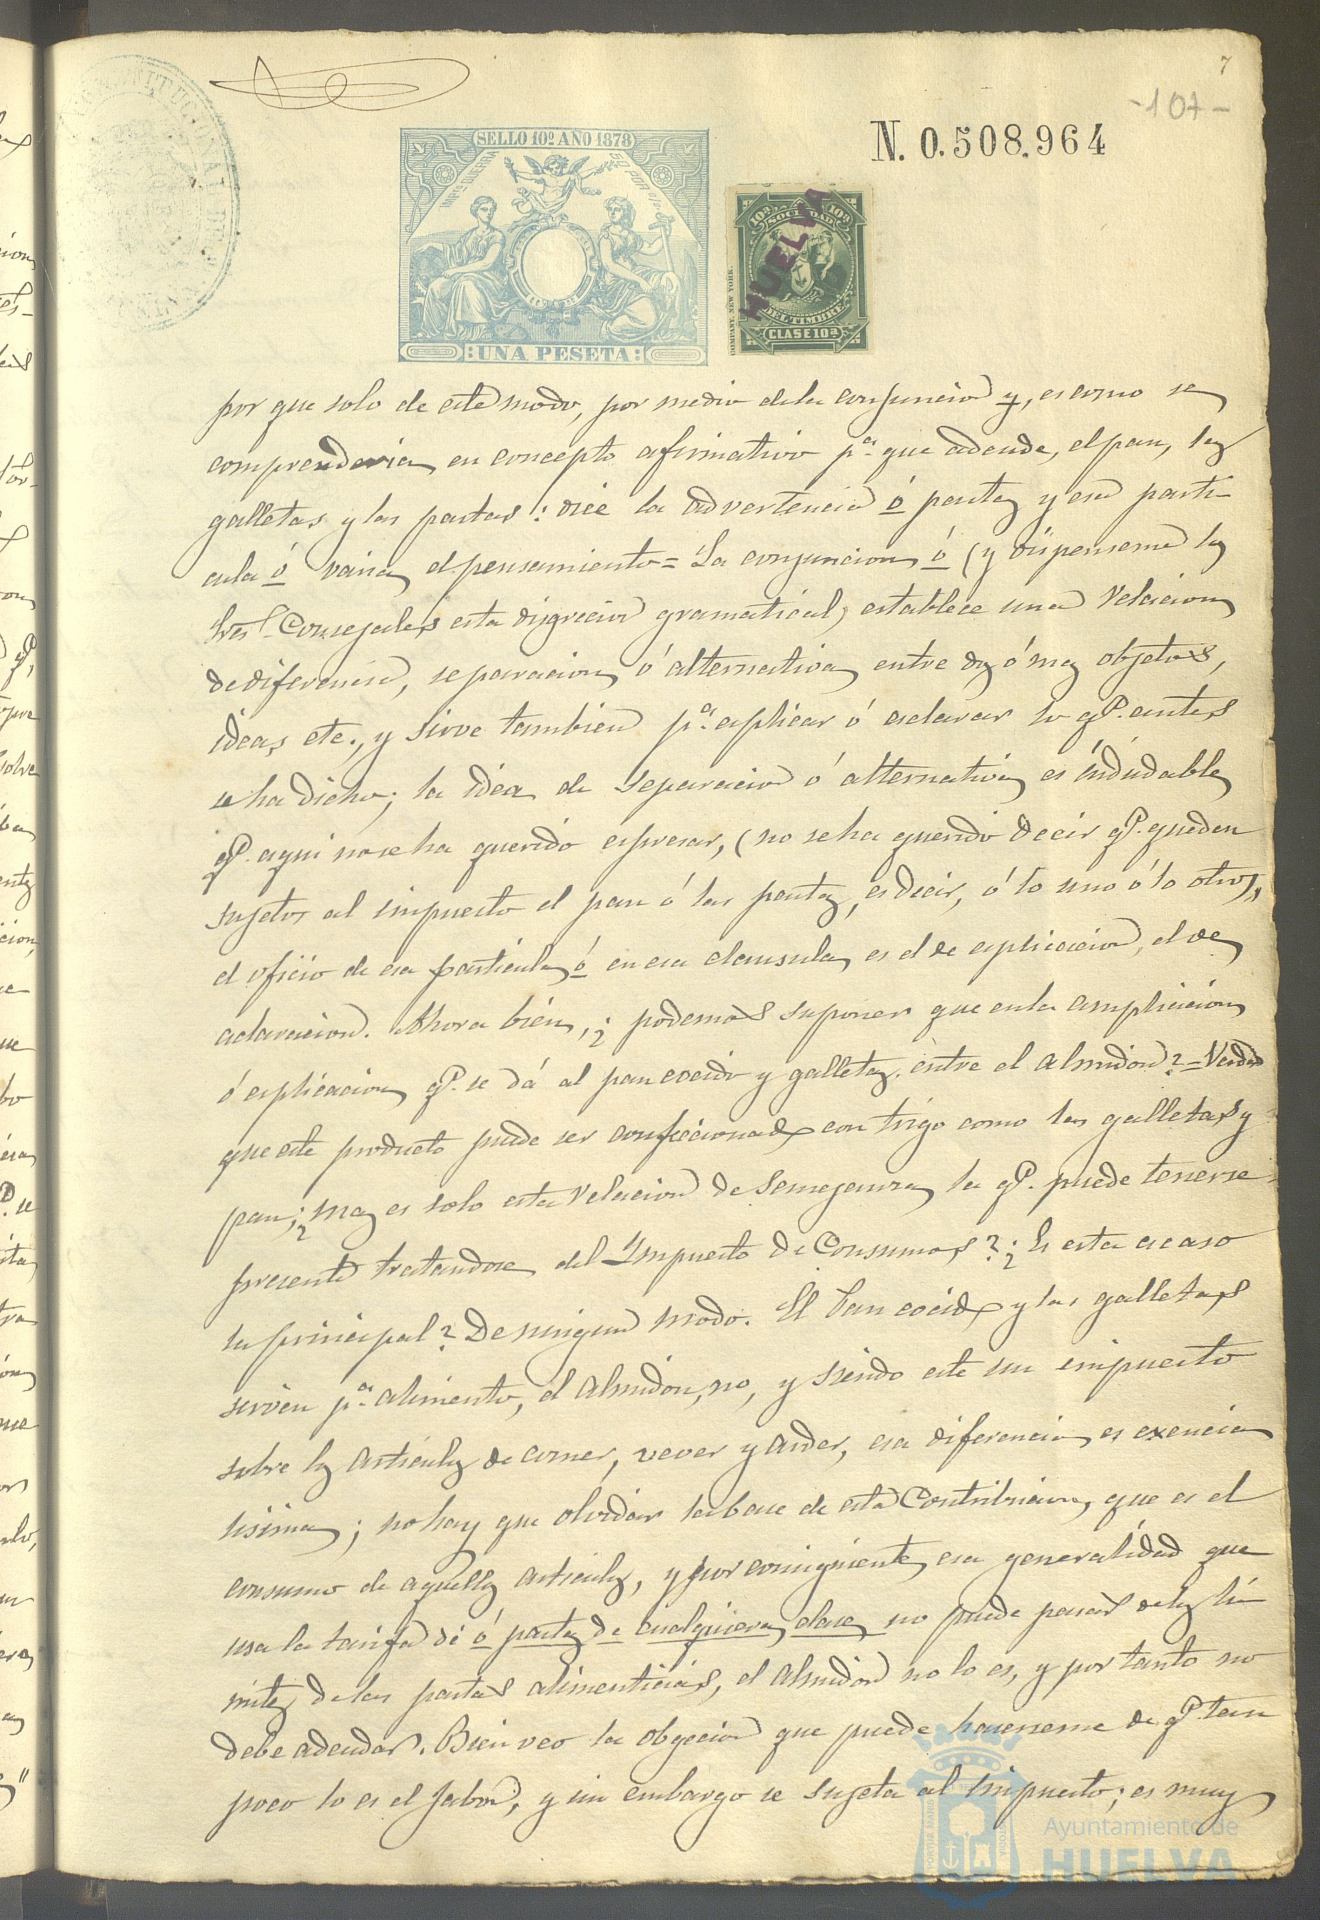 7
-107-
N. 0.508.964
SELLO 10º AÑO 1878
UNA PESETA
10ª SOCIEDAD 10ª
DEL TIMBRE
CLASE 10ª
HUELVA
COMPANY NEW YORK.
por que solo de este modo, por medio de la conjuncion y, es como se
comprenderia en concepto afirmativo pª que adeude, el pan, las
galletas y las pastas: dice la advertencia ó pastas y esa parti-
cula ó varia el pensamiento = La conjuncion ó (y dispensenme los
Sres. Consejales esta digrecion gramatical) establece una relacion
de diferencia, separacion ó alternativa entre dos ó mas objetos,
ideas, etc., y sirve tambien pª esplicar ó aclarar lo qe. antes
se ha dicho; la idea de separacion ó alternativa es indudable
qe. aqui no se ha querido espresar, (no se ha querido decir qe. queden
sujetos al impuesto el pan ó las pastas, es decir, ó lo uno ó lo otro),
el oficio de esa particula ó en esa clausula es el de esplicacion, el de
aclaracion. Ahora bien, ¿podemos suponer que en la ampliacion
ó esplicacion qe. se dá al pan cocido y galletas entre el almidon? = Verdad
que este producto puede ser confeccionado con trigo como las galletas y
pan; ¿mas es solo esta relacion de semejanza la qe. puede tenerse
presente tratandose del Impuesto de Consumos? ¿Es esta acaso
la principal? De ningun modo. El Pan cocido y las galletas
sirven pª alimento, el almidon, no, y siendo este un impuesto
sobre los articulos de comer, vever y arder, esa diferencia es esencia
lisima; no hay que olvidar la base de esta Contribucion, que es el
consumo de aquellos articulos, y por consiguiente esa generalidad que
usa la tarifa de ó pastas de cualquiera clase no puede pasar de los lí
mites de las pastas alimenticias, el almidon no lo es, y por tanto no
debe adeudar. Bien veo la obgecion que puede hacerseme de qe. tam
poco lo es el jabon, y sin embargo se sujeta al impuesto; es muy
Ayuntamiento de
HUELVA